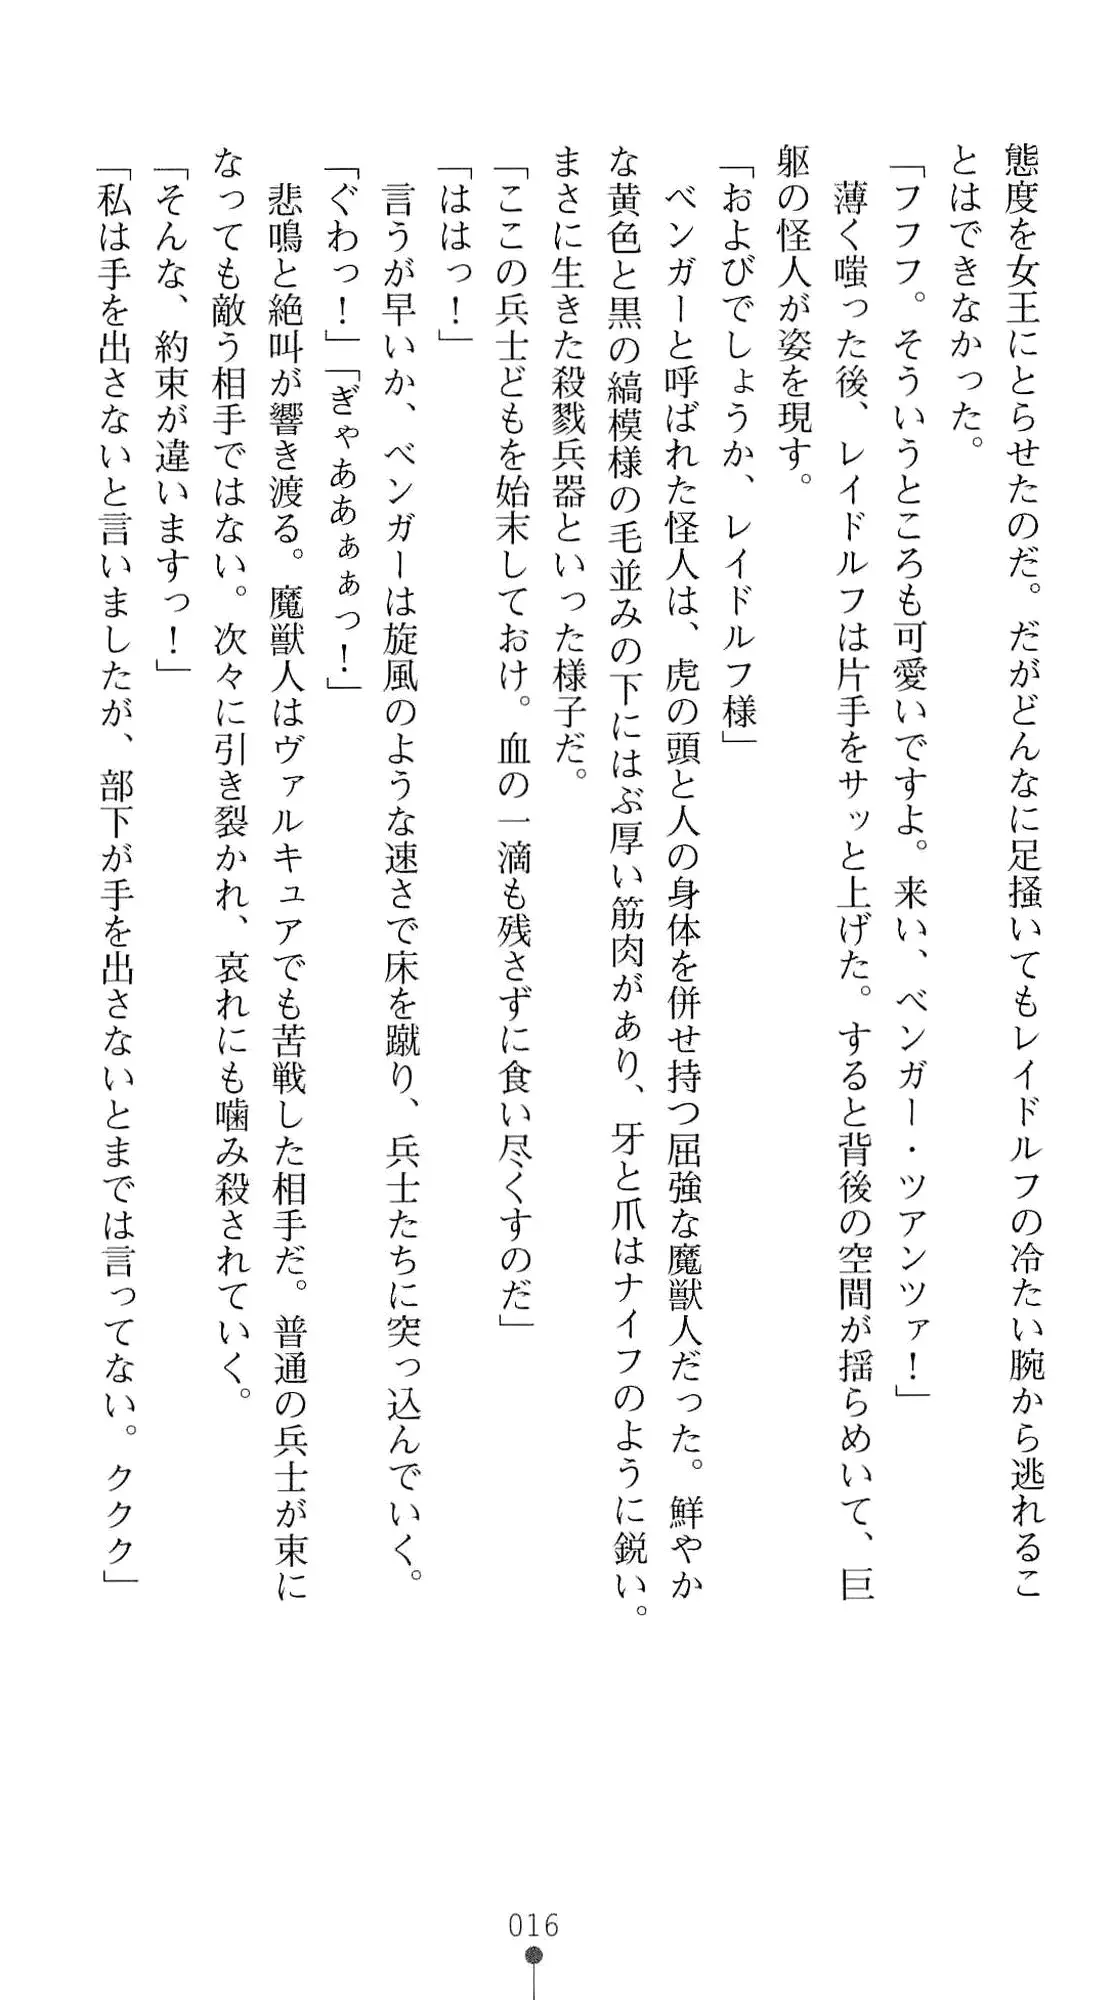 態度を女王にとらせたのだ。だがどんなに足掻いてもレイドルフの冷たい腕から逃れるこ
とはできなかった。
「フフフ。そういうところも可愛いですよ。来い、ベンガー・ツアンツァ！」
　薄く嗤った後、レイドルフは片手をサッと上げた。すると背後の空間が揺らめいて、巨
躯の怪人が姿を現す。
「およびでしょうか、レイドルフ様」
　ベンガーと呼ばれた怪人は、虎の頭と人の身体を併せ持つ屈強な魔獣人だった。鮮やか
な黄色と黒の縞模様の毛並みの下にはぶ厚い筋肉があり、牙と爪はナイフのように鋭い。
まさに生きた殺戮兵器といった様子だ。
「ここの兵士どもを始末しておけ。血の一滴も残さずに食い尽くすのだ」
「ははっ！」
　言うが早いか、ベンガーは旋風のような速さで床を蹴り、兵士たちに突っ込んでいく。
「ぐわっ！」「ぎゃああぁぁっ！」
　悲鳴と絶叫が響き渡る。魔獣人はヴァルキュアでも苦戦した相手だ。普通の兵士が束に
なっても敵う相手ではない。次々に引き裂かれ、哀れにも噛み殺されていく。
「そんな、約束が違いますっ！」
「私は手を出さないと言いましたが、部下が手を出さないとまでは言ってない。ククク」
016